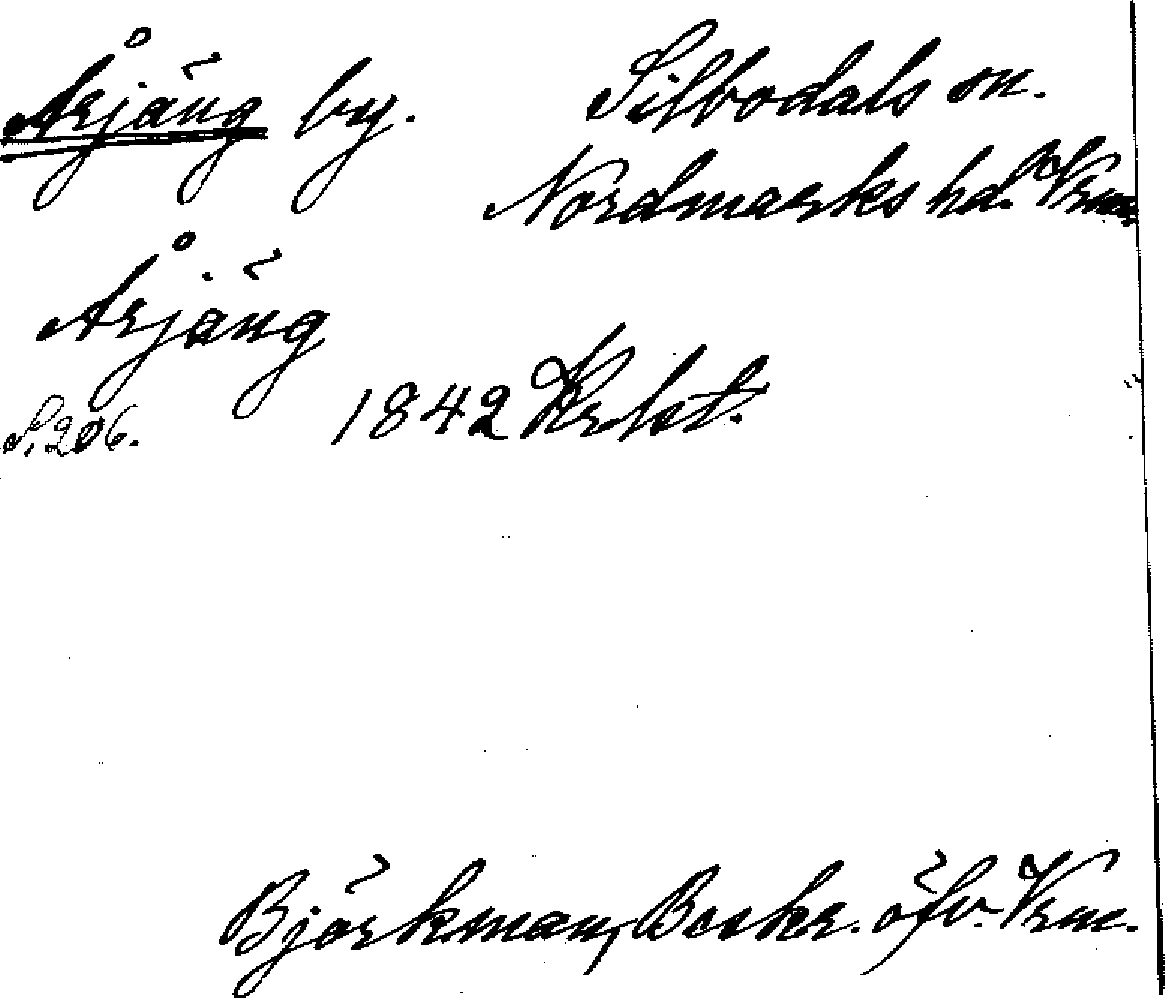 Årjäng by. Silbodals sn.
Nordmarks hd. Vrm.
Årjäng
S. 206. 1842
Björkman, Beskr. öfv. Vrm.